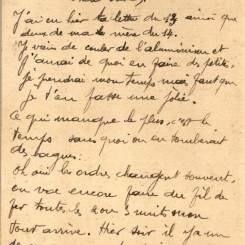 J'ai eu hier ta lettre du 13 ainsi que
deux de ma mère du 14.
Je vais de couler de l'aluminium et
j'aurai de quoi en faire des petits,
je prendrai mon temps mais faut que
je t'en fasse une jolie.
Ce qui manque le plus, c'est le
temps sans quoi on en tomberait
des bagues.
Oh où les ordres changent souvent,
on va encore faire du fil de
fer toutes les nuits mon
tout arrive. Hier soir il y a un